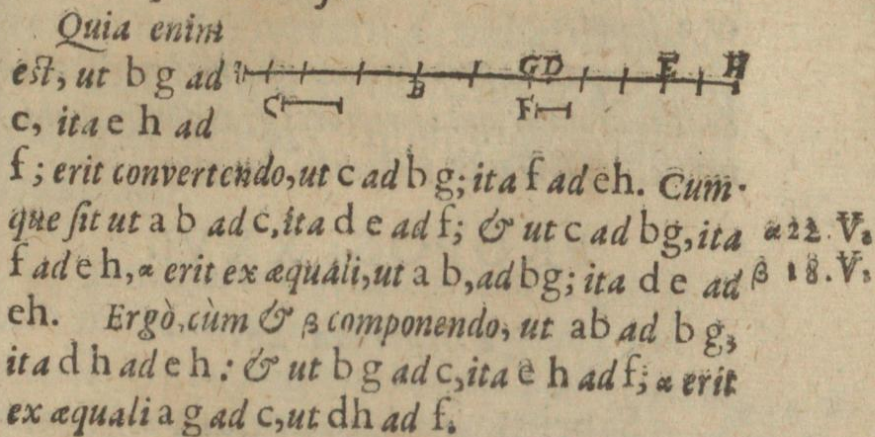 Quia enim
est, ut b g ad
B
G D
E
H
C
F
c, ita e h ad
f; erit convertendo, ut c ad b g; ita f ad eh. Cum-
que sit ut a b ad c, ita d e ad f; & ut c ad bg, ita
α 22. V.
f ad e h, α erit ex æquali, ut a b, ad bg; ita d e ad
β 18. V.
eh. Ergò, cùm & β componendo, ut ab ad b g,
ita d h ad e h: & ut b g ad c, ita e h ad f; α erit
ex æquali a g ad c, ut dh ad f.